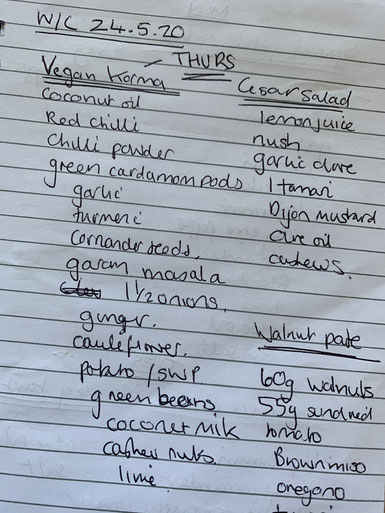 W/C 24.5.20
- THURS
Vegan Korma
coconut oil
Red chilli
chilli powder
green cardamom pods
garlic
turmeric
corriander seeds.
garam masala
1 1/2 onions.
ginger.
cauleflower.
potato / swp.
green beans
coconet milk
cashew nuts.
lime.
Cesar Salad
lemon juice
nush
garlic clove
1 tamari
Dijon mustard
olive oil
cashews.
Walnut pate
60g walnuts
55g sundried
tomato
Brown miso
oregano